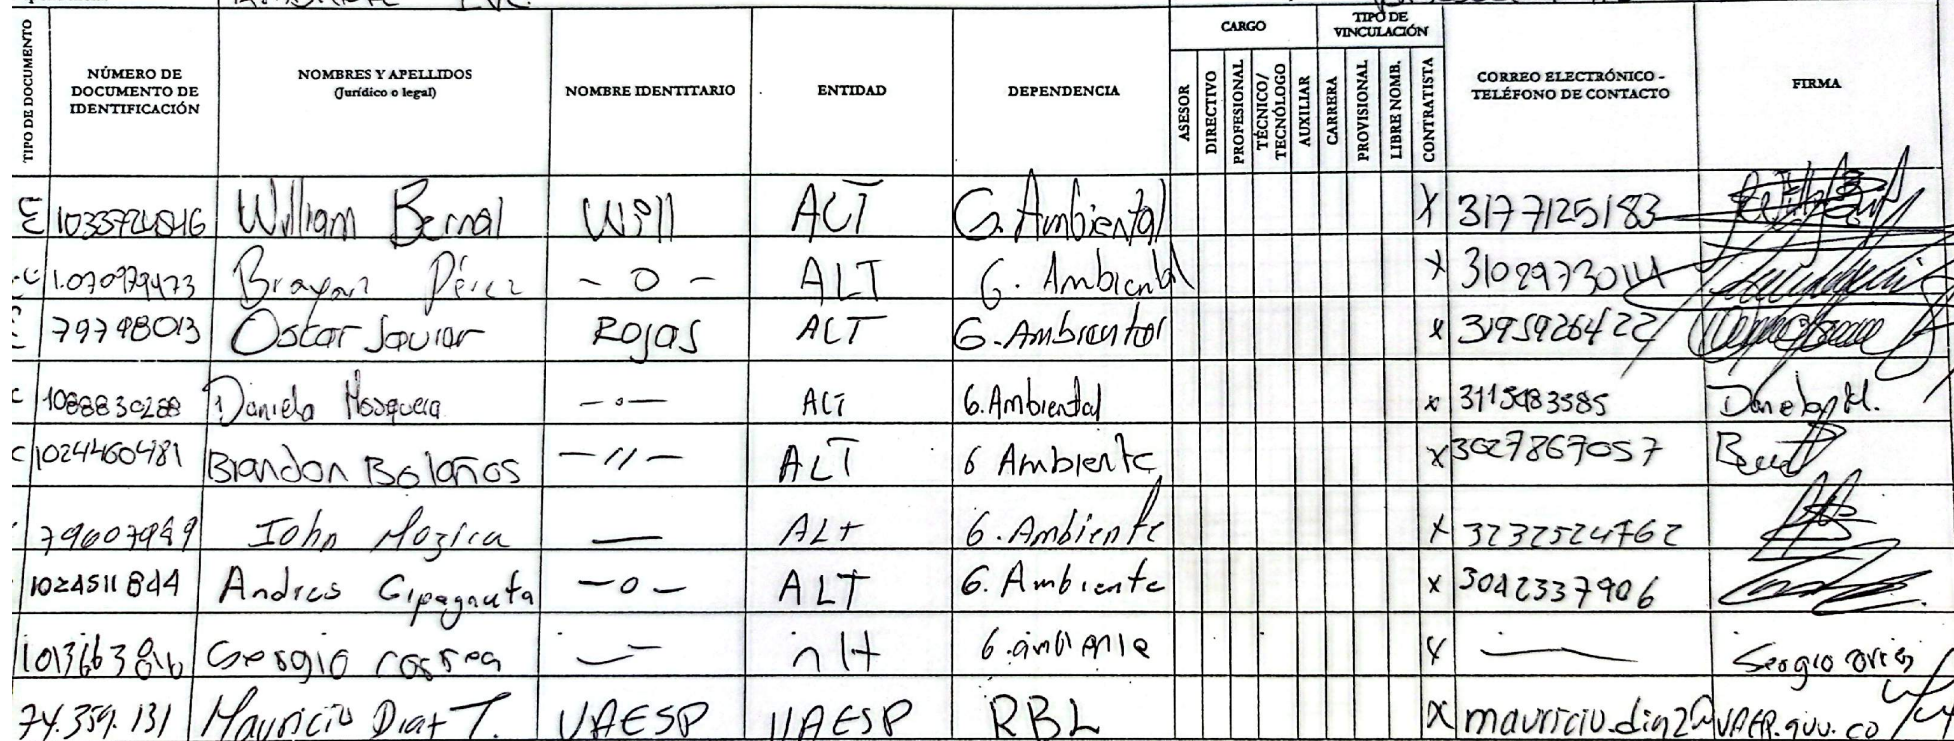 CARGO TIPO DE VINCULACIÓN
TIPO DE DOCUMENTO NÚMERO DE DOCUMENTO DE IDENTIFICACIÓN NOMBRES Y APELLIDOS (Jurídico o legal) NOMBRE IDENTITARIO ENTIDAD DEPENDENCIA ASESOR DIRECTIVO PROFESIONAL TÉCNICO/ TECNÓLOGO AUXILIAR CARRERA PROVISIONAL LIBRE NOMB. CONTRATISTA CORREO ELECTRÓNICO - TELÉFONO DE CONTACTO FIRMA
William Bernal Will ALT G. Ambiental X 3177125183
1.070979473 Brayan Pérez - 0 - ALT G. Ambiental X
79798013 Oscar Javier Rojas ALT G. Ambiental x 3195926422
1088830288 Daniela Mosquera - o - ALT G. Ambiental x 3115983585 Daniela M.
1024460481 Brandon Bolaños - // - ALT G Ambiente x 3027867057
79607989 John Mozica — ALT G. Ambiente x 3232524762
1024511844 Andres Cipagauta - o - ALT G. Ambiente x 3042337906
Sergio Correa — G. ambiente x —
74.359.131 Mauricio Diaz T. UAESP UAESP RBL X mauricio.diaz@uaesp.gov.co